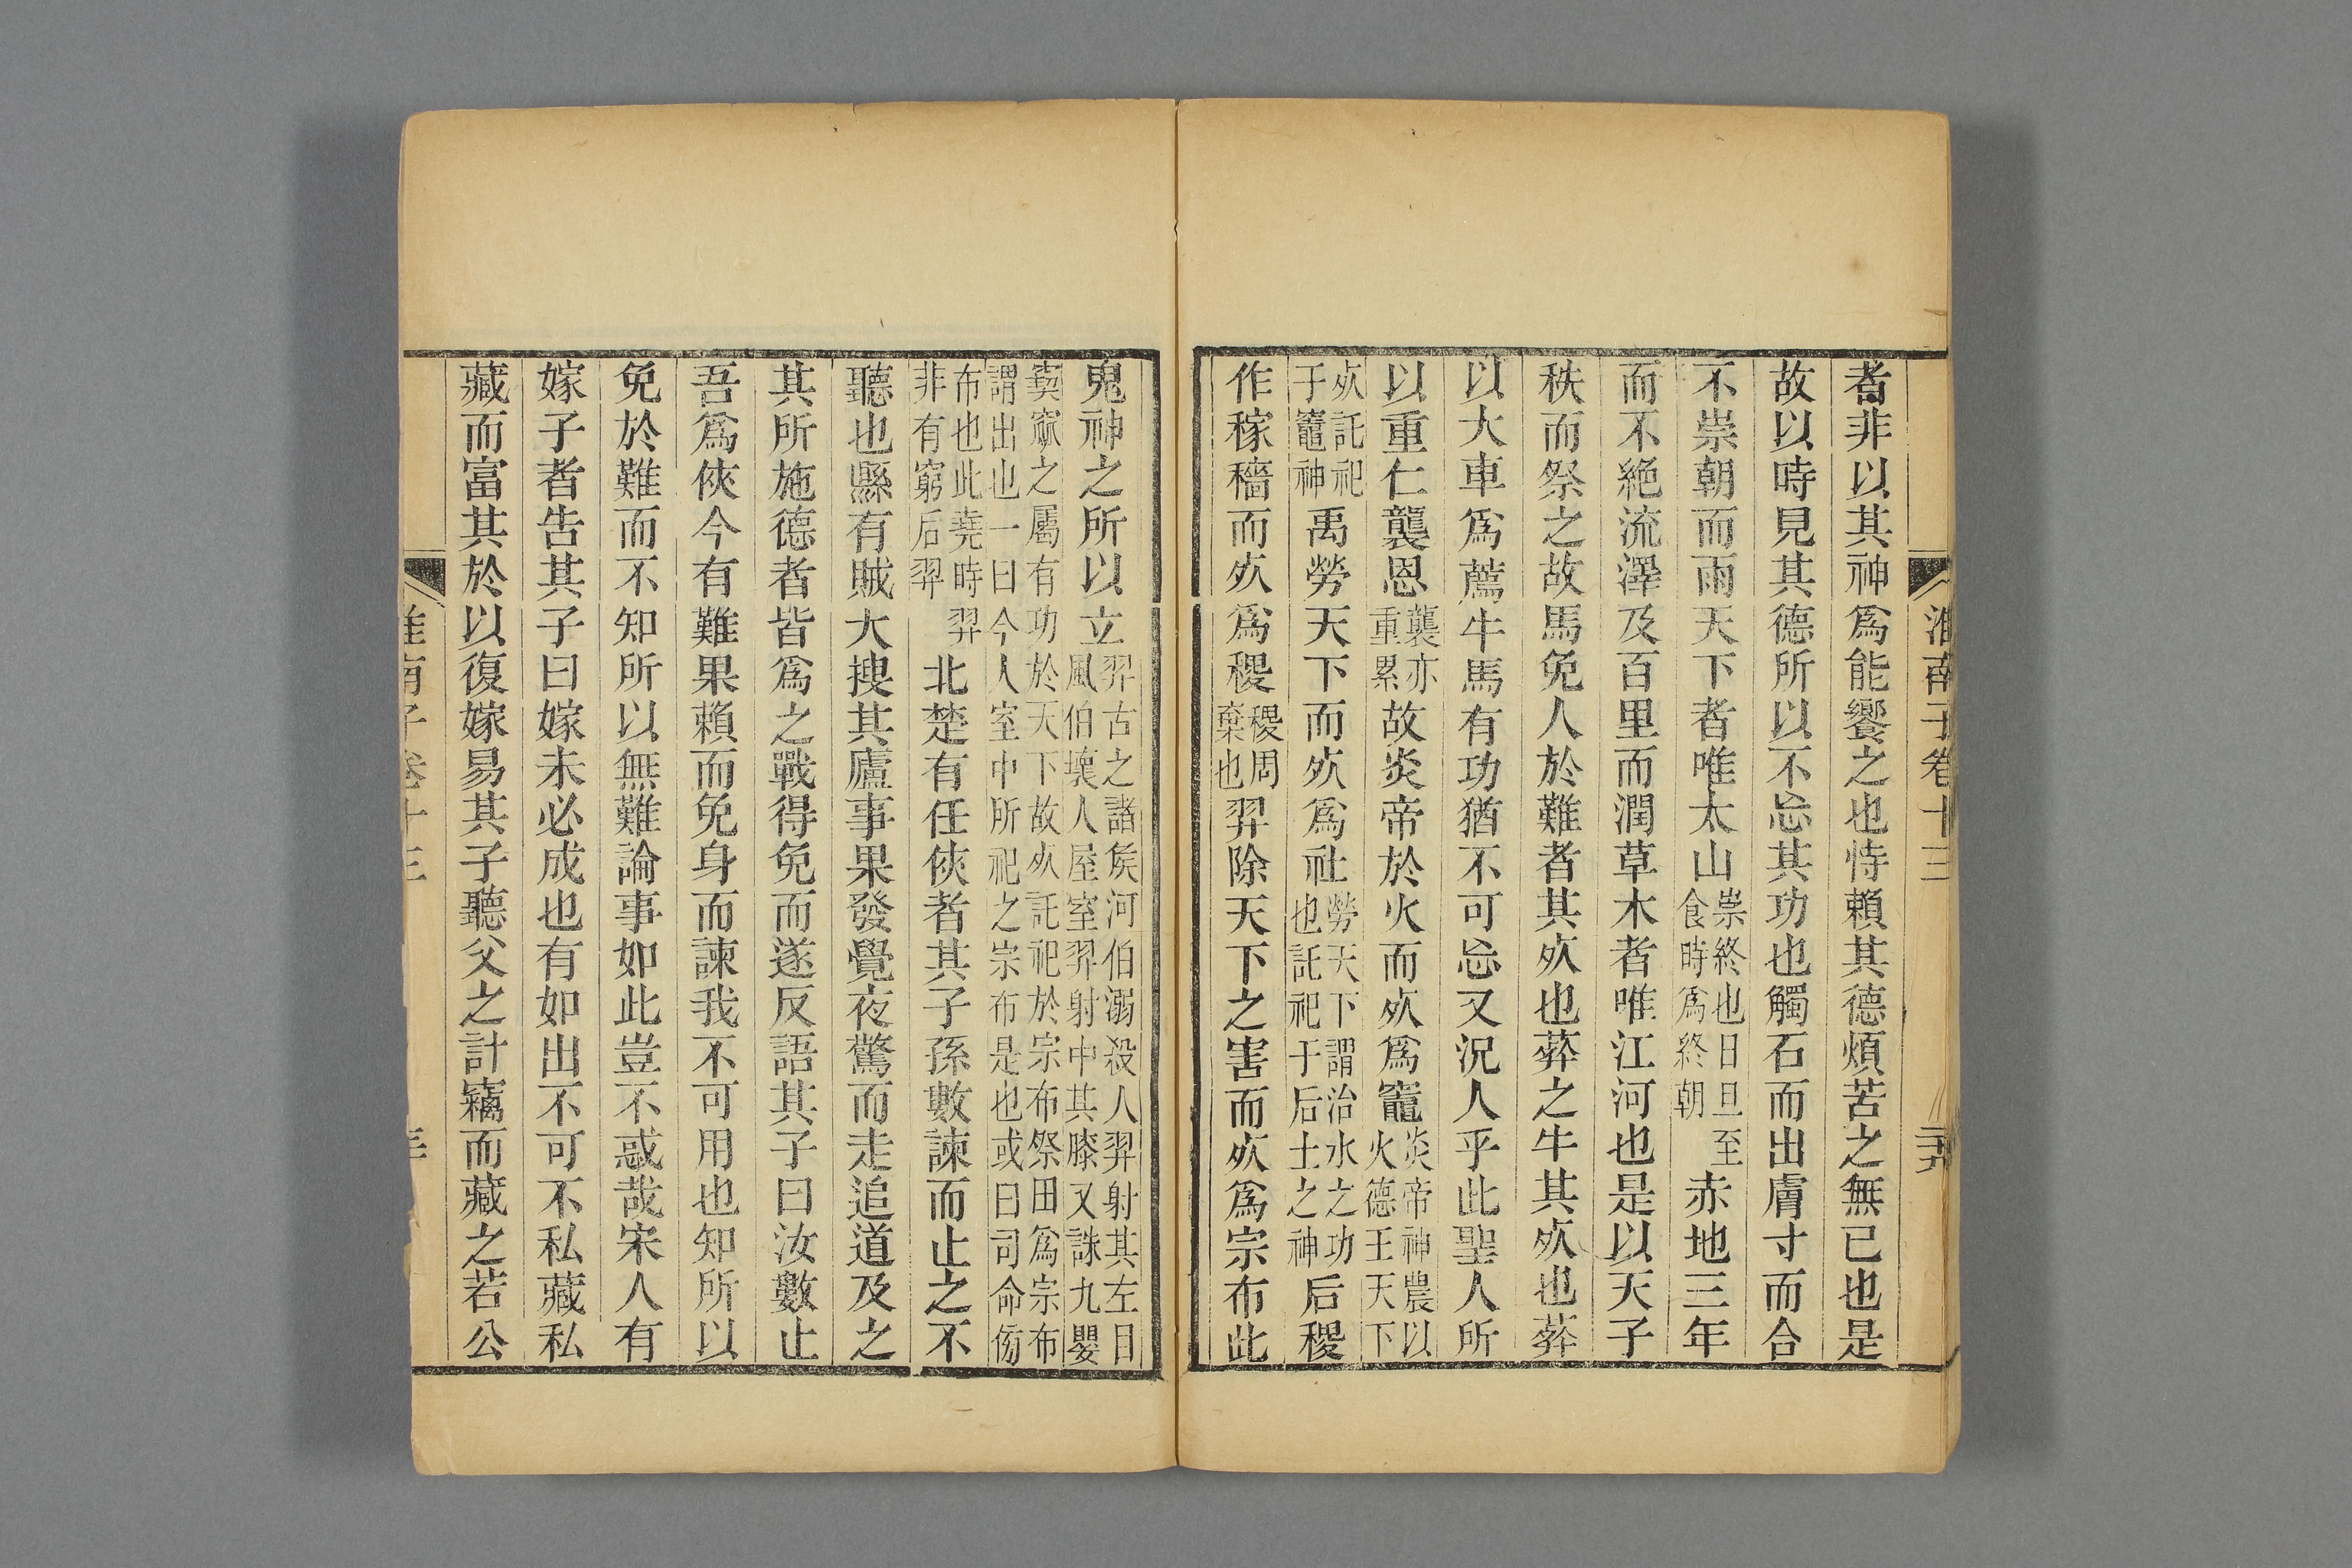 淮南子卷十三
者非以其神爲能饗之也恃賴其德煩苦之無已也是
故以時見其德所以不忘其功也觸石而出膚寸而合
不崇朝而雨天下者唯太山崇終也日旦至食時爲終朝赤地三年
而不絶流澤及百里而潤草木者唯江河也是以天子
秩而祭之故馬免人於難者其㱙也葬之牛其㱙也葬
以大車爲薦牛馬有功猶不可忘又況人乎此聖人所
以重仁襲恩襲亦重累故炎帝於火而㱙爲竈炎帝神農以火德王天下
㱙託祀于竈神禹勞天下而㱙爲社勞天下謂治水之功也託祀于后土之神后稷
作稼穡而㱙爲稷稷周棄也羿除天下之害而㱙爲宗布此
鬼神之所以立羿古之諸矦河伯溺殺人羿射其左目風伯壞人屋室羿射中其膝又誅九嬰
窫窳之屬有功於天下故㱙託祀於宗布祭田爲宗布謂出也一曰今人室中所祀之宗布是也或曰司命傍
布也此堯時羿非有窮后羿北楚有任俠者其子孫數諫而止之不
聽也縣有賊大搜其廬事果發覺夜驚而走追道及之
其所施德者皆爲之戰得免而遂反語其子曰汝數止
吾爲俠今有難果賴而免身而諫我不可用也知所以
免於難而不知所以無難論事如此豈不惑哉宋人有
嫁子者告其子曰嫁未必成也有如出不可不私藏私
藏而富其於以復嫁易其子聽父之計竊而藏之若公
南子卷十三